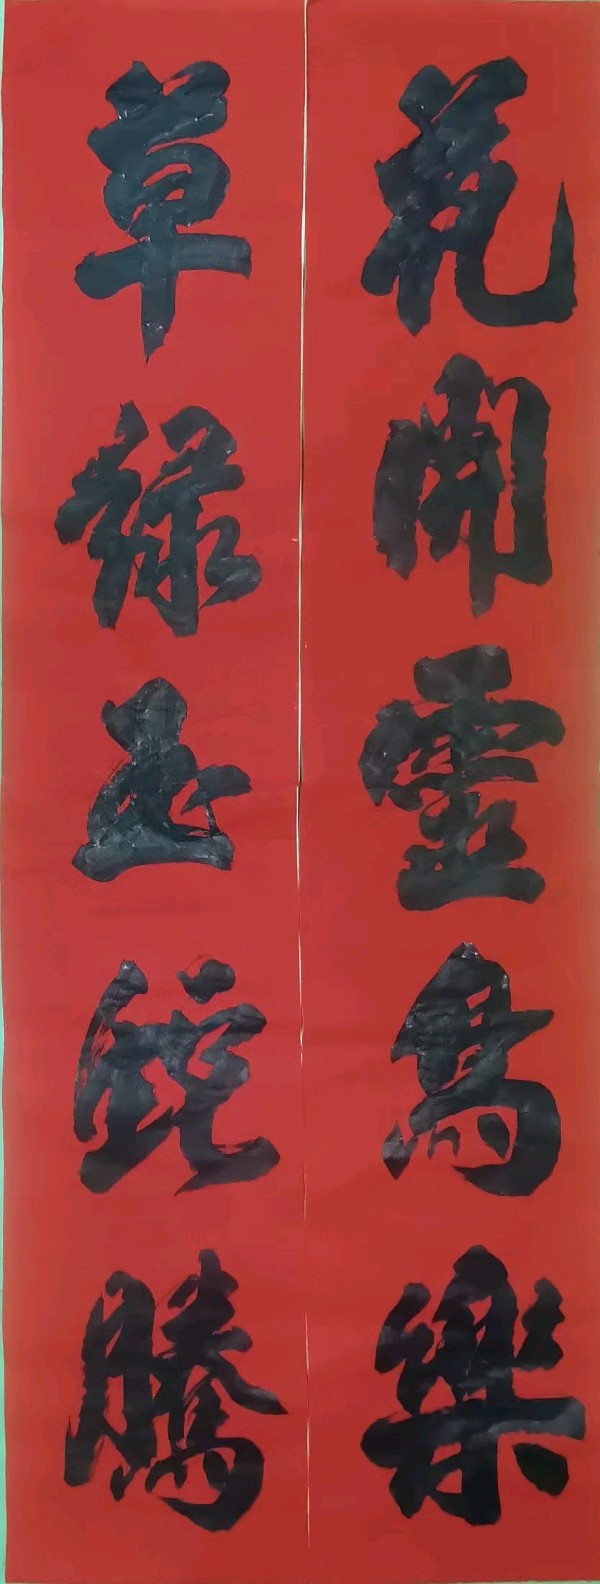 花開靈鳥樂
草綠玉蛇騰